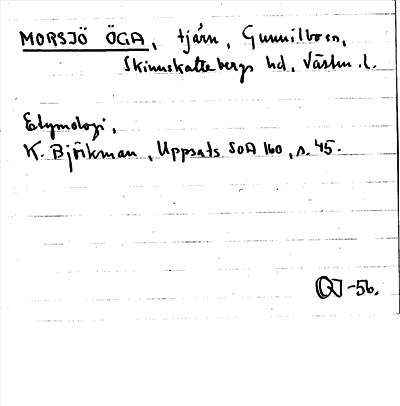 MORSJÖ ÖGA, tjärn, Gunnilbo sn,
Skinnskattebergs hd, Västm. l.
Etymologi,
K. Björkman, Uppsats SOA 160, s. 45.
OJ -56.